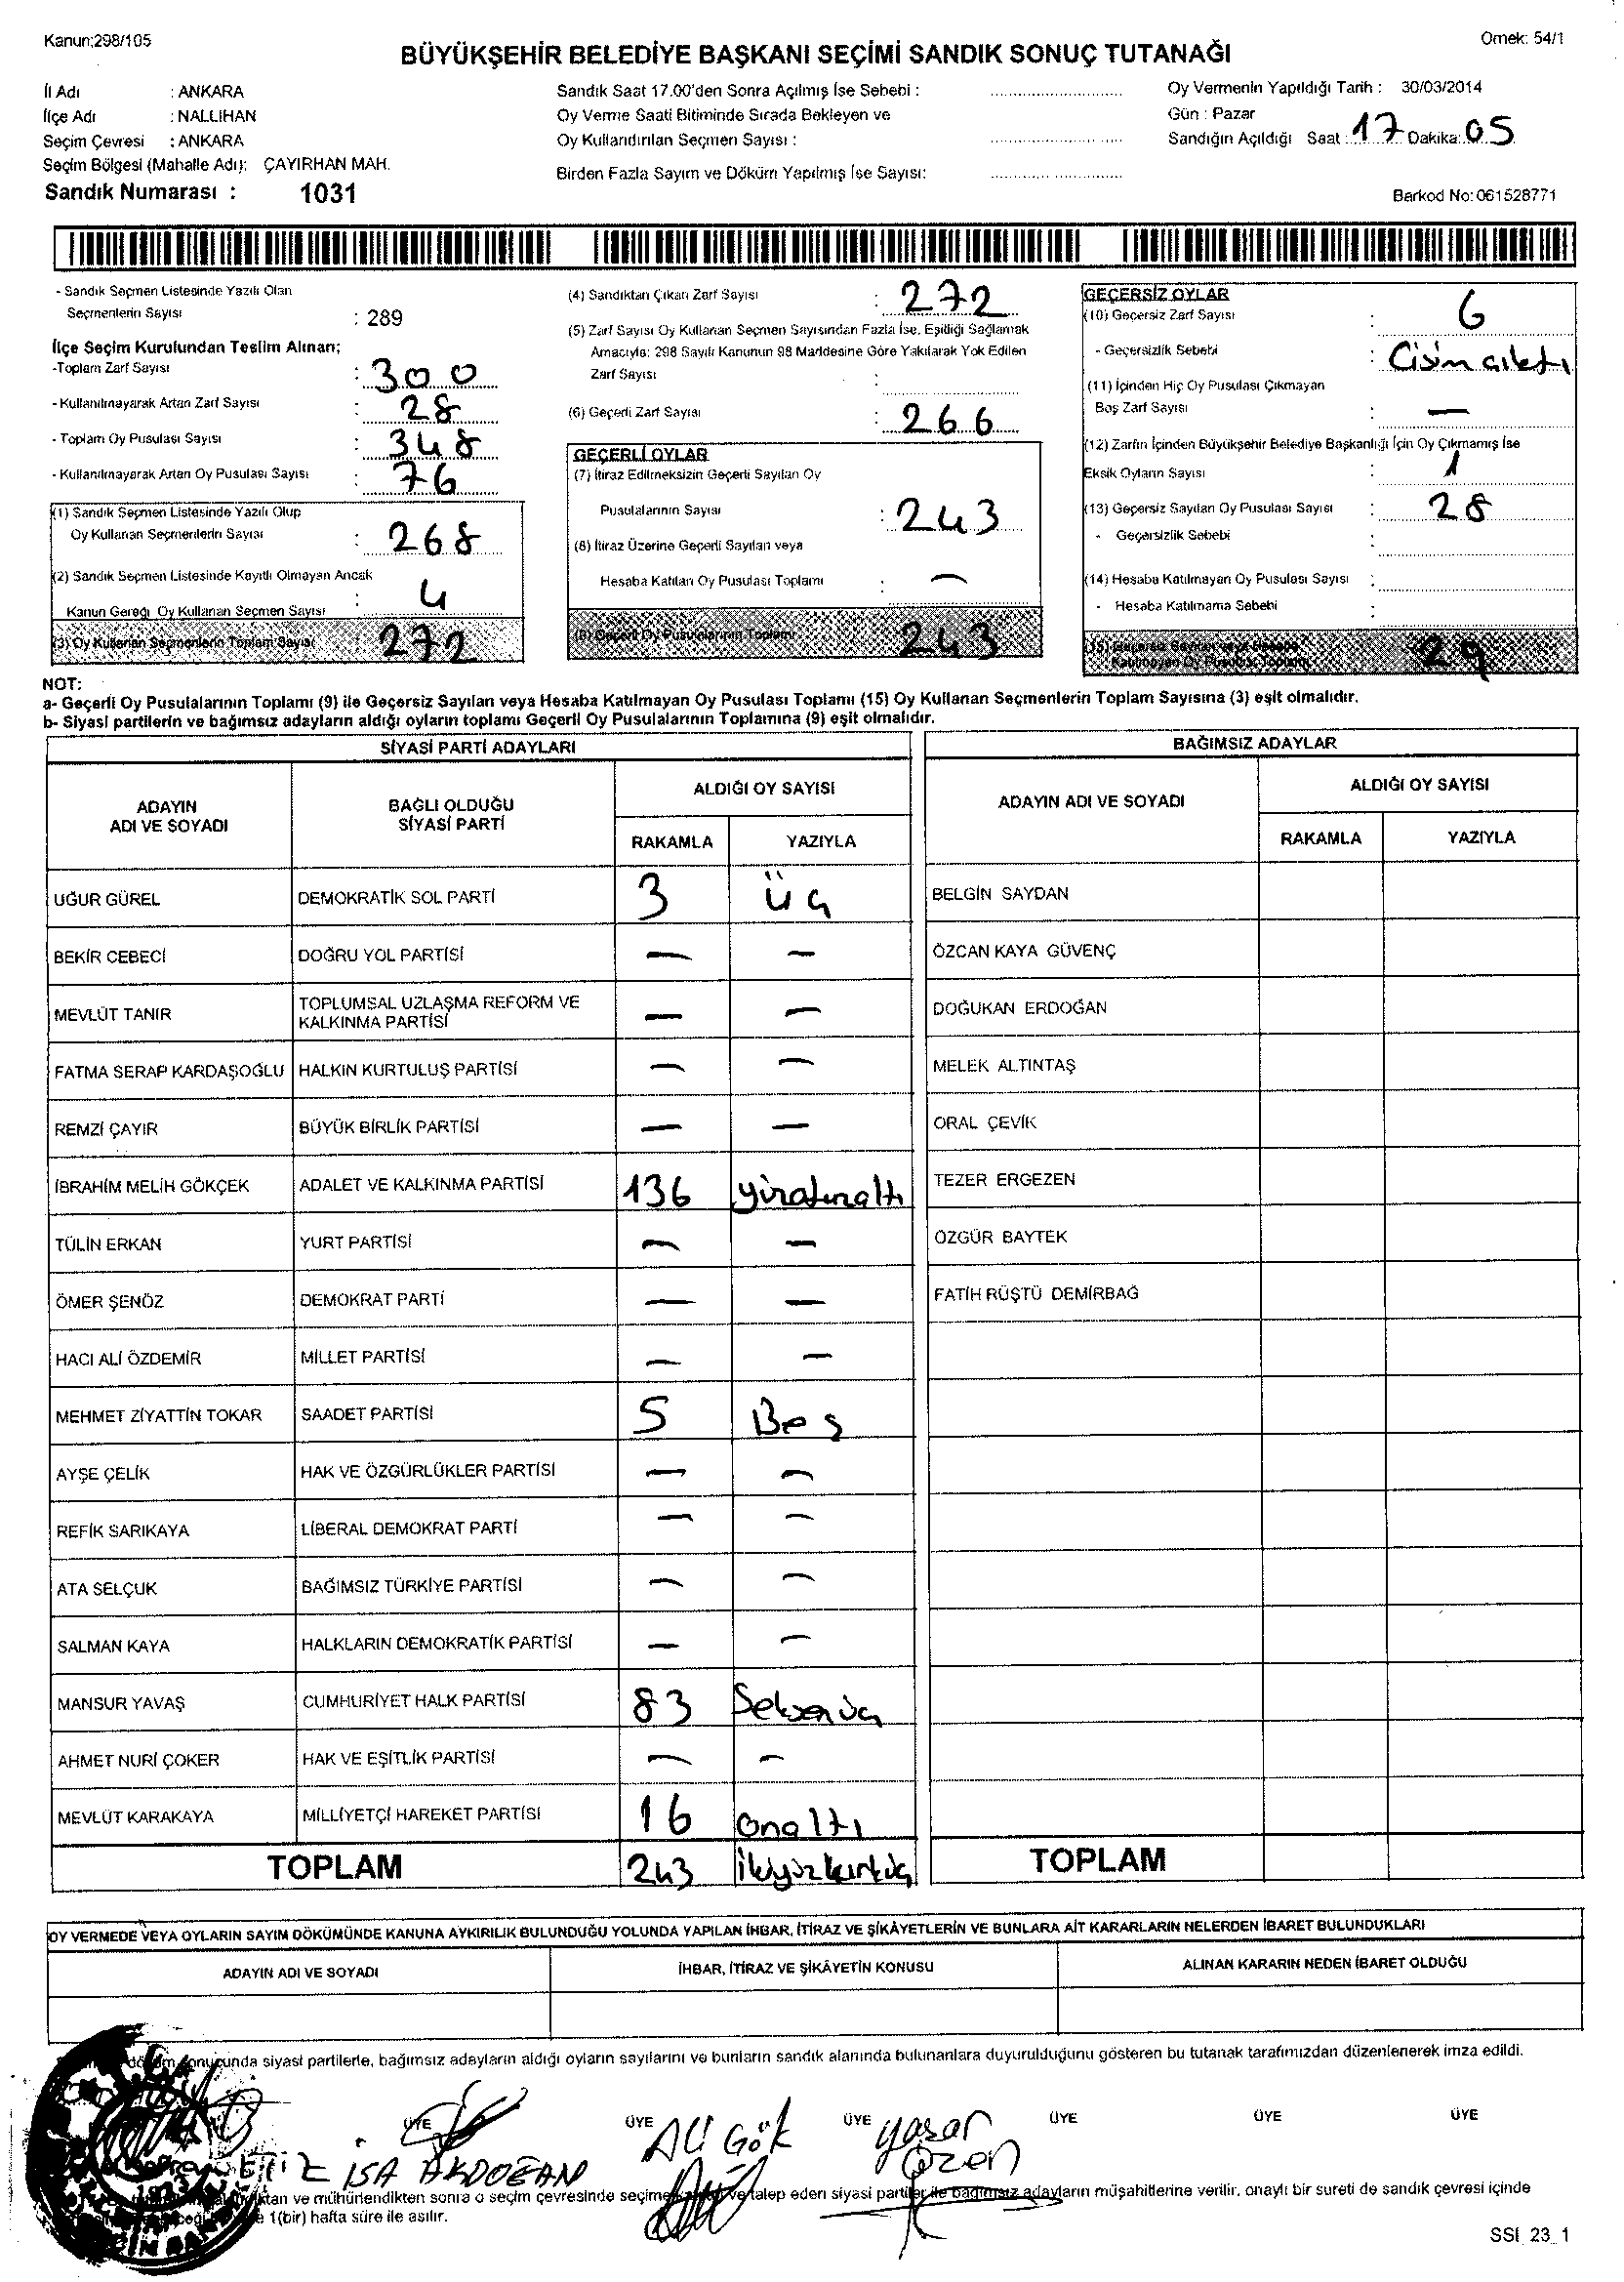 Kanun:298/105
Örnek: 54/1
BÜYÜKŞEHİR BELEDİYE BAŞKANI SEÇİMİ SANDIK SONUÇ TUTANAĞI
İl Adı : ANKARA
İlçe Adı : NALLIHAN
Seçim Çevresi : ANKARA
Seçim Bölgesi (Mahalle Adı): ÇAYIRHAN MAH.
Sandık Numarası : 1031
Sandık Saat 17.00'den Sonra Açılmış İse Sebebi :
Oy Verme Saati Bitiminde Sırada Bekleyen ve
Oy Kullandırılan Seçmen Sayısı :
Birden Fazla Sayım ve Döküm Yapılmış İse Sayısı:
Oy Vermenin Yapıldığı Tarih : 30/03/2014
Gün : Pazar
Sandığın Açıldığı Saat : 17 Dakika: 05
Barkod No: 061528771
- Sandık Seçmen Listesinde Yazılı Olan
Seçmenlerin Sayısı : 289
İlçe Seçim Kurulundan Teslim Alınan;
-Toplam Zarf Sayısı : 300
- Kullanılmayarak Artan Zarf Sayısı : 28
- Toplam Oy Pusulası Sayısı : 348
- Kullanılmayarak Artan Oy Pusulası Sayısı : 76
(1) Sandık Seçmen Listesinde Yazılı Olup
Oy Kullanan Seçmenlerin Sayısı : 268
(2) Sandık Seçmen Listesinde Kayıtlı Olmayan Ancak
Kanun Gereği Oy Kullanan Seçmen Sayısı : 4
(3) Oy Kullanan Seçmenlerin Toplam Sayısı 272
(4) Sandıktan Çıkan Zarf Sayısı : 272
(5) Zarf Sayısı Oy Kullanan Seçmen Sayısından Fazla İse, Eşitliği Sağlamak
Amacıyla; 298 Sayılı Kanunun 98 Maddesine Göre Yakılarak Yok Edilen
Zarf Sayısı :
(6) Geçerli Zarf Sayısı : 266
GEÇERLİ OYLAR
(7) İtiraz Edilmeksizin Geçerli Sayılan Oy
Pusulalarının Sayısı : 243
(8) İtiraz Üzerine Geçerli Sayılan veya
Hesaba Katılan Oy Pusulası Toplamı : —
(9) Geçerli Oy Pusulalarının Toplamı 243
GEÇERSİZ OYLAR
(10) Geçersiz Zarf Sayısı : 6
- Geçersizlik Sebebi : Cisim çıktı
(11) İçinden Hiç Oy Pusulası Çıkmayan
Boş Zarf Sayısı : —
(12) Zarfın İçinden Büyükşehir Belediye Başkanlığı İçin Oy Çıkmamış İse
Eksik Oyların Sayısı : 1
(13) Geçersiz Sayılan Oy Pusulası Sayısı : 28
- Geçersizlik Sebebi :
(14) Hesaba Katılmayan Oy Pusulası Sayısı :
- Hesaba Katılmama Sebebi :
(15) Geçersiz Sayılan veya Hesaba
Katılmayan Oy Pusulası Toplamı 29
NOT:
a- Geçerli Oy Pusulalarının Toplamı (9) ile Geçersiz Sayılan veya Hesaba Katılmayan Oy Pusulası Toplamı (15) Oy Kullanan Seçmenlerin Toplam Sayısına (3) eşit olmalıdır.
b- Siyasi partilerin ve bağımsız adayların aldığı oyların toplamı Geçerli Oy Pusulalarının Toplamına (9) eşit olmalıdır.
SİYASİ PARTİ ADAYLARI
ADAYIN ADI VE SOYADI
BAĞLI OLDUĞU SİYASİ PARTİ
ALDIĞI OY SAYISI
RAKAMLA YAZIYLA
UĞUR GÜREL DEMOKRATİK SOL PARTİ 3 üç
BEKİR CEBECİ DOĞRU YOL PARTİSİ — —
MEVLÜT TANIR TOPLUMSAL UZLAŞMA REFORM VE KALKINMA PARTİSİ — —
FATMA SERAP KARDAŞOĞLU HALKIN KURTULUŞ PARTİSİ — —
REMZİ ÇAYIR BÜYÜK BİRLİK PARTİSİ — —
İBRAHİM MELİH GÖKÇEK ADALET VE KALKINMA PARTİSİ 136
TÜLİN ERKAN YURT PARTİSİ — —
ÖMER ŞENÖZ DEMOKRAT PARTİ — —
HACI ALİ ÖZDEMİR MİLLET PARTİSİ — —
MEHMET ZİYATTİN TOKAR SAADET PARTİSİ 5 Beş
AYŞE ÇELİK HAK VE ÖZGÜRLÜKLER PARTİSİ — —
REFİK SARIKAYA LİBERAL DEMOKRAT PARTİ — —
ATA SELÇUK BAĞIMSIZ TÜRKİYE PARTİSİ — —
SALMAN KAYA HALKLARIN DEMOKRATİK PARTİSİ — —
MANSUR YAVAŞ CUMHURİYET HALK PARTİSİ 83 Seksenüç
AHMET NURİ ÇOKER HAK VE EŞİTLİK PARTİSİ — —
MEVLÜT KARAKAYA MİLLİYETÇİ HAREKET PARTİSİ 16 onaltı
TOPLAM 243 İkiyüzkırküç
BAĞIMSIZ ADAYLAR
ADAYIN ADI VE SOYADI
ALDIĞI OY SAYISI
RAKAMLA YAZIYLA
BELGİN SAYDAN
ÖZCAN KAYA GÜVENÇ
DOĞUKAN ERDOĞAN
MELEK ALTINTAŞ
ORAL ÇEVİK
TEZER ERGEZEN
ÖZGÜR BAYTEK
FATİH RÜŞTÜ DEMİRBAĞ
TOPLAM
OY VERMEDE VEYA OYLARIN SAYIM DÖKÜMÜNDE KANUNA AYKIRILIK BULUNDUĞU YOLUNDA YAPILAN İHBAR, İTİRAZ VE ŞİKÂYETLERİN VE BUNLARA AİT KARARLARIN NELERDEN İBARET BULUNDUKLARI
ADAYIN ADI VE SOYADI
İHBAR, İTİRAZ VE ŞİKÂYETİN KONUSU
ALINAN KARARIN NEDEN İBARET OLDUĞU
sonucunda siyasi partilerle, bağımsız adayların aldığı oyların sayılarını ve bunların sandık alanında bulunanlara duyurulduğunu gösteren bu tutanak tarafımızdan düzenlenerek imza edildi.
ÜYE ÜYE ÜYE ÜYE ÜYE ÜYE
İSA AKDOĞAN
Ali Gök
Yaşar Özen
ve mühürlendikten sonra o seçim çevresinde ve talep eden siyasi partiler ile bağımsız adayların müşahitlerine verilir. onaylı bir sureti de sandık çevresi içinde
1(bir) hafta süre ile asılır.
SSI_23_1